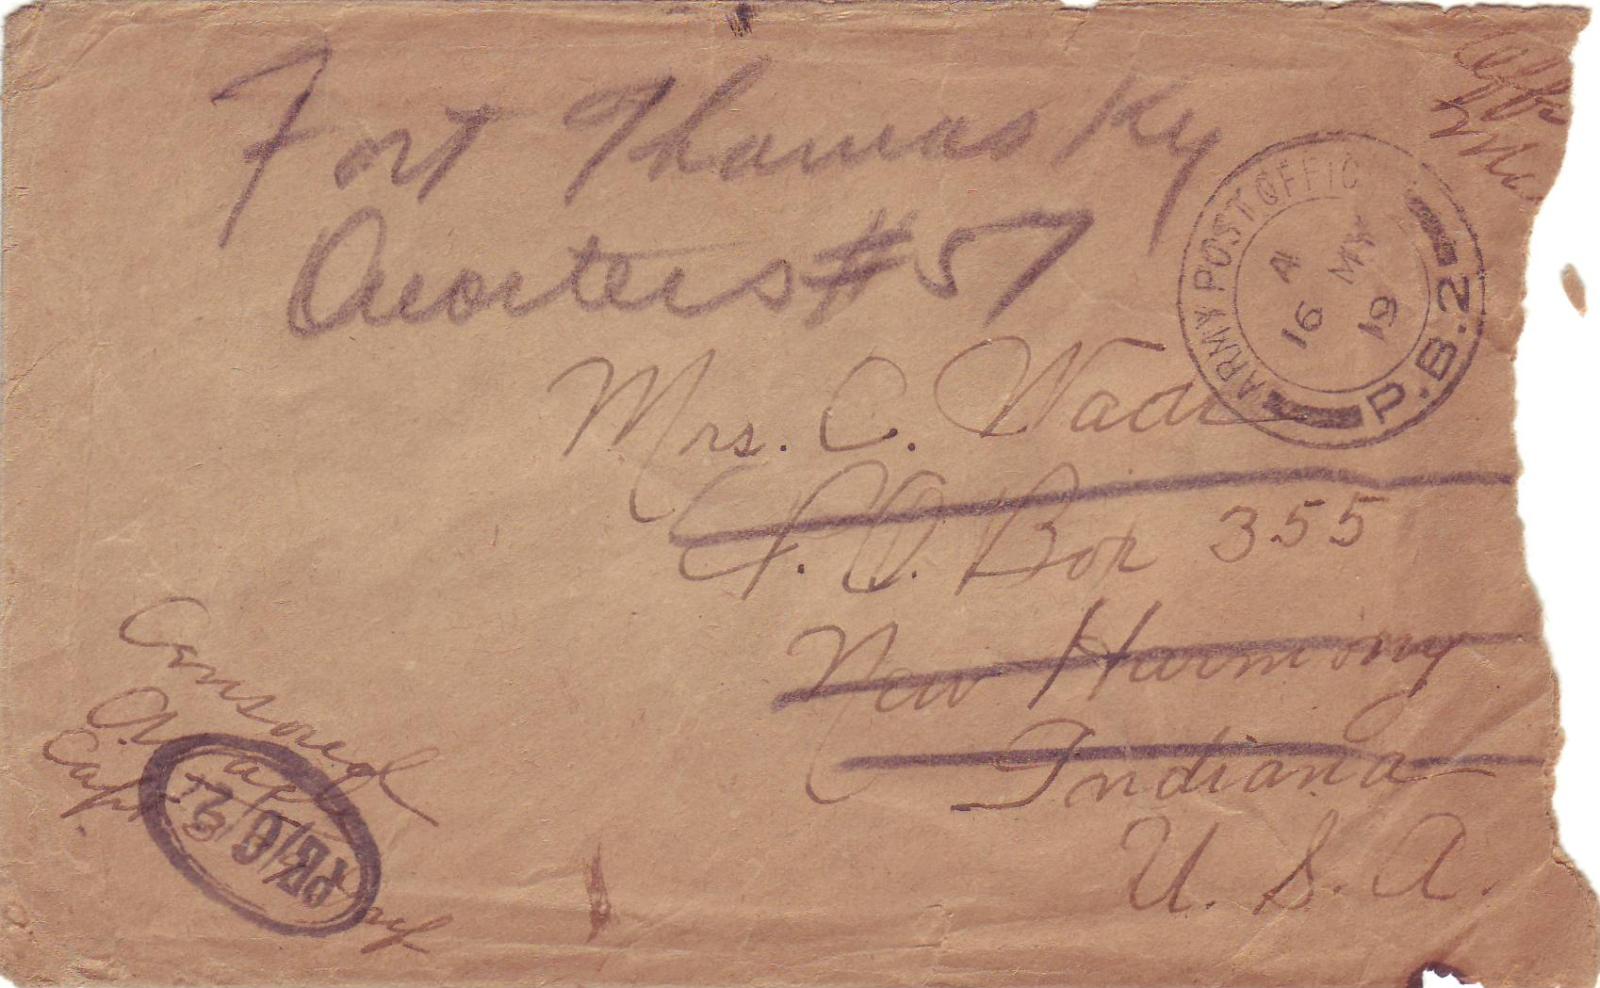 Fort Thomas Ky
Quarters #57
ARMY POST OFFIC
A
16 MY 19
P.B.2
Mrs. C. Wade
P.O. Box 355
New Harmony
Indiana
U. S. A.
Censored
Capt.
Inf